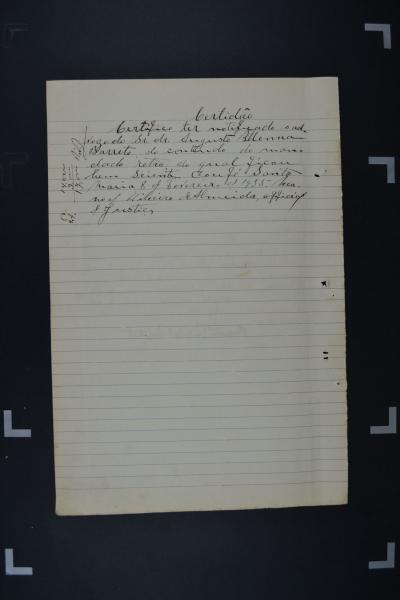 Certidão
Certifico ter notificado o ad
vogado Sr. dr. Augusto Menna
Barreto do conteúdo do man
dado retro, do qual ficou
bem sciente Dou fé Santa
Maria 8 de Fevereiro d 1935.
noel Ribeiro d Almeida, official
d Justiça,